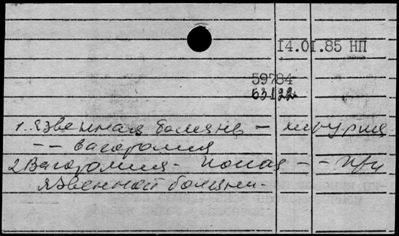 14.01.85 НП
59784
63122
1. Язвенная болезнь - хирургия
-- Ваготомия
2 Ваготомия - полая - - при
язвенной болезни.